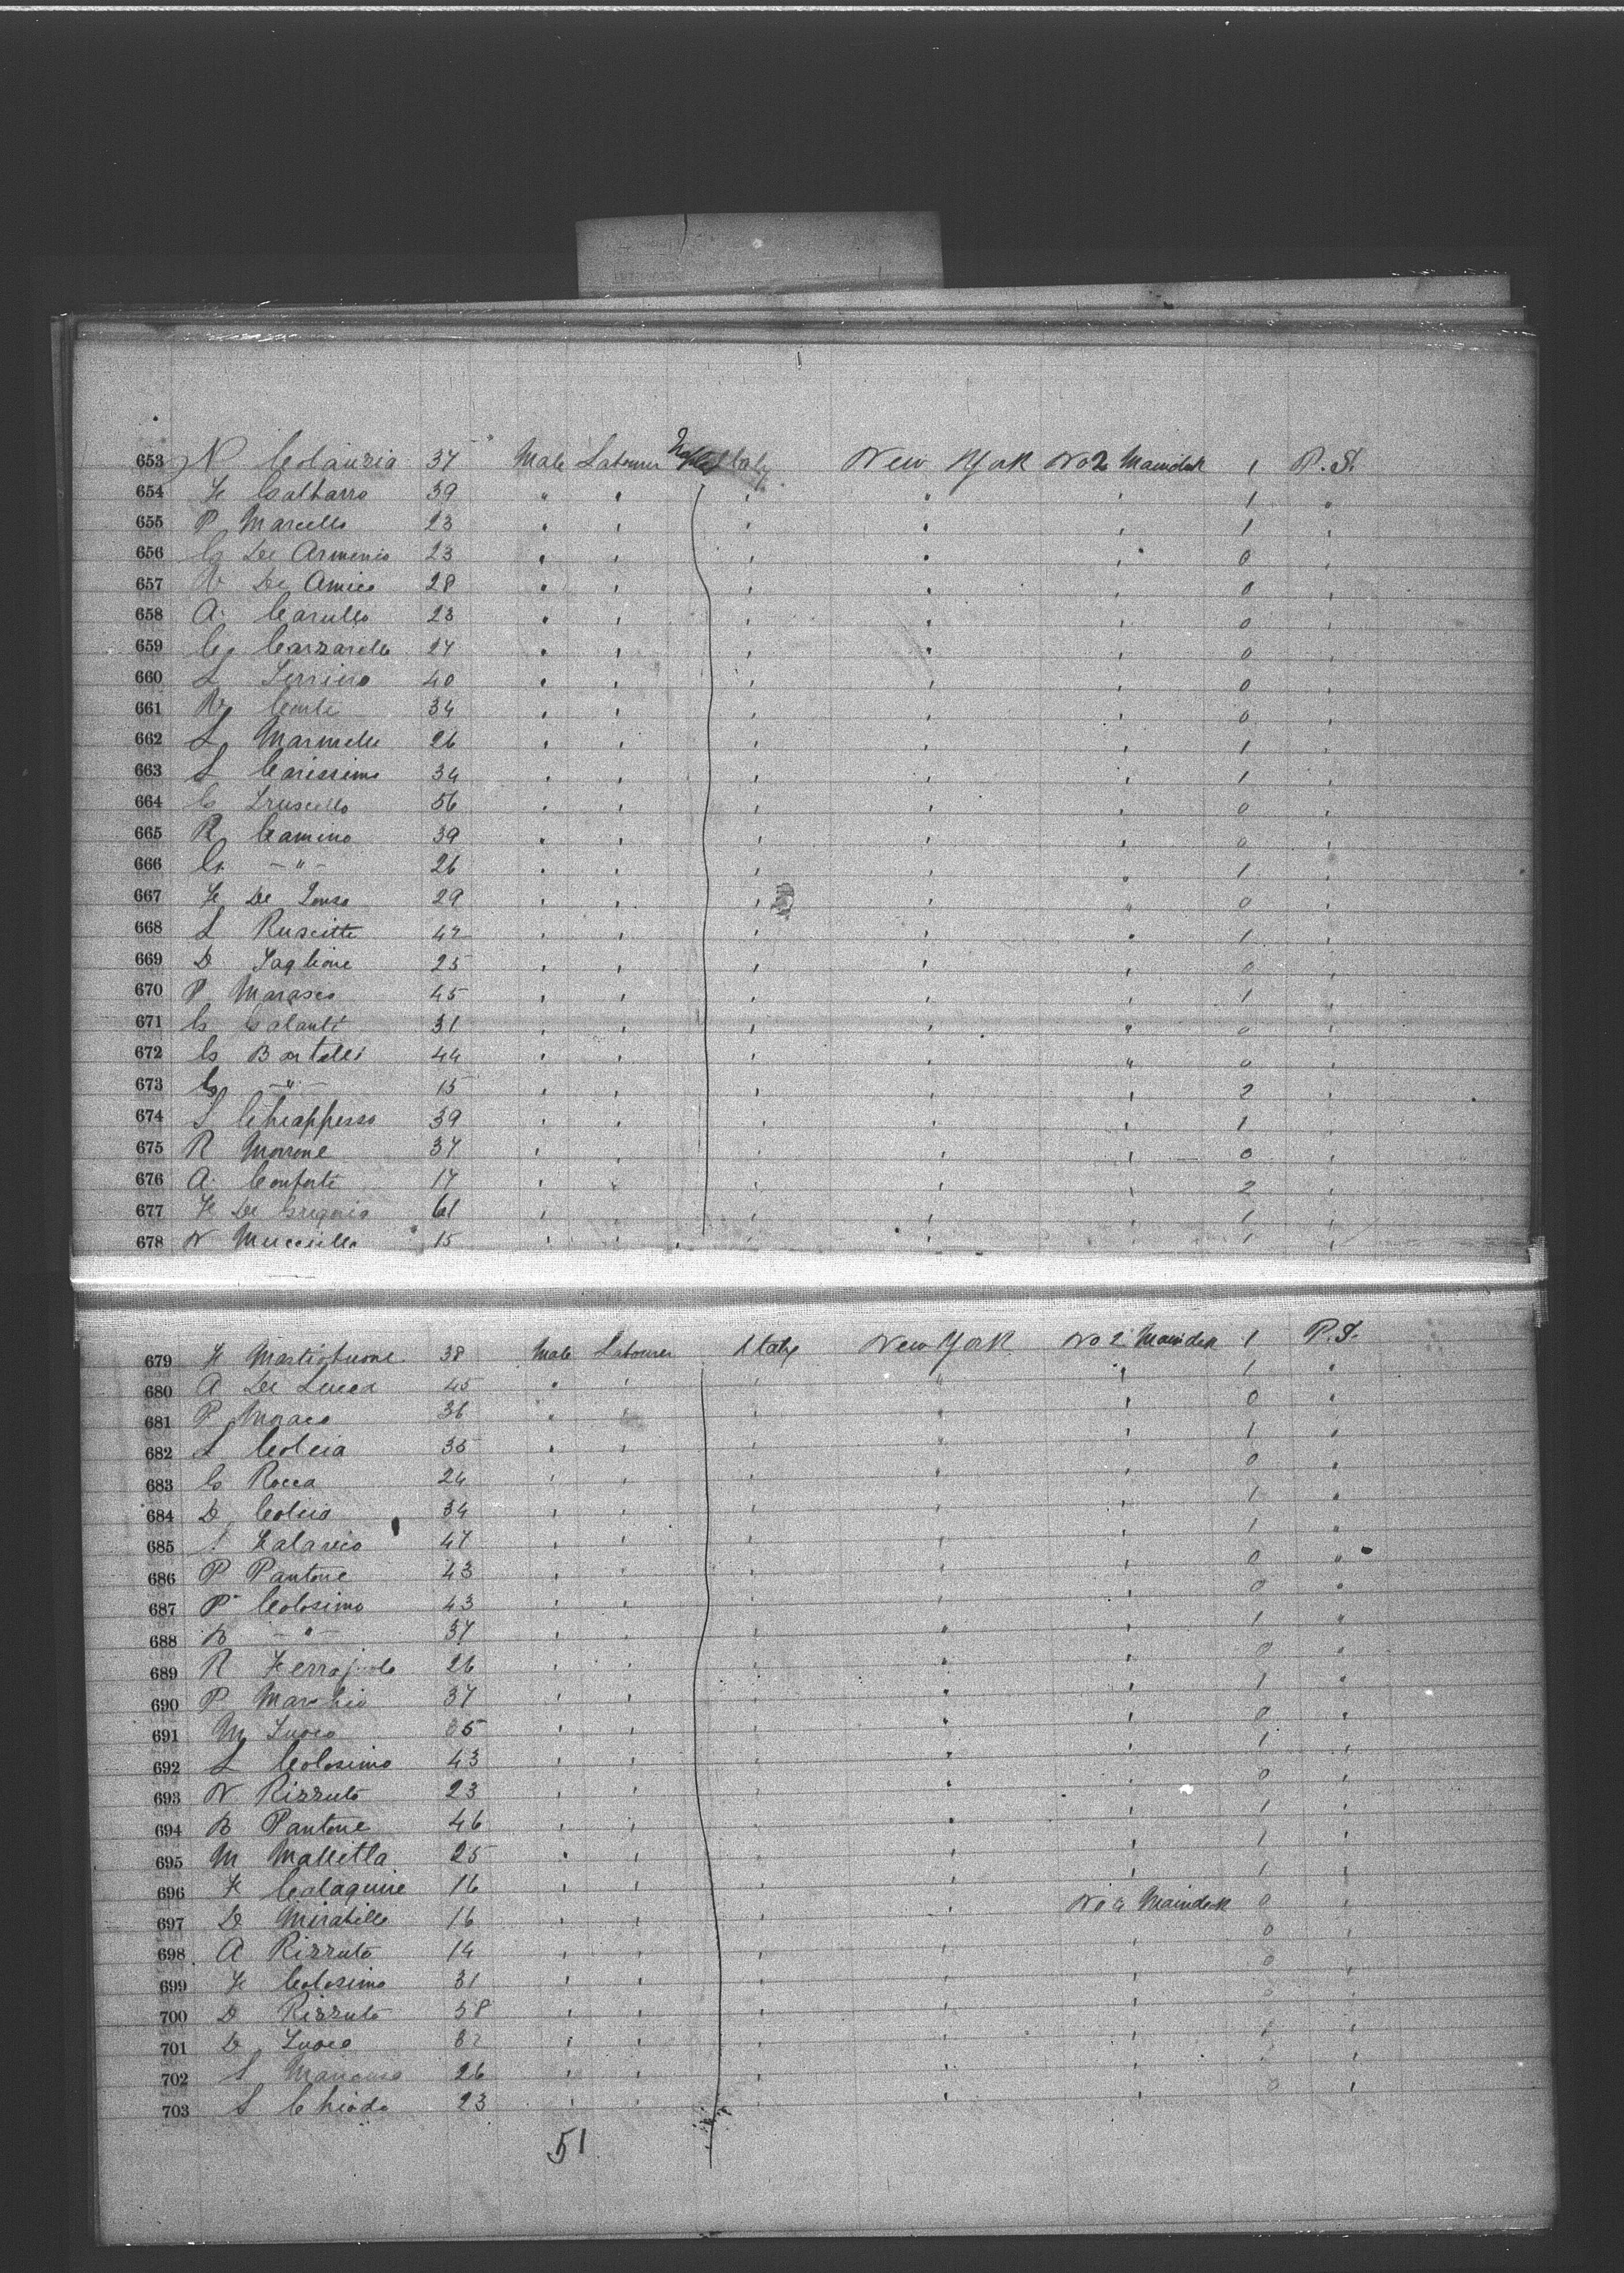 653 N Colauzia 37 Male Labourer Naples Italy New York No 2 Maindek 1 P.S.
654 F Galbarro 39 " " " " " 1 "
655 P Marcello 23 " " " " " 1 "
656 G De Armenio 23 " " " " " 0 "
657 De Amico 28 " " " " " 0 "
658 A. Carullo 23 " " " " " 0 "
659 C. Carzarello 27 " " " " " 0 "
660 L 40 " " " " " 0 "
661 Conte 34 " " " " " 0 "
662 L Marinelli 26 " " " " " 1 "
663 S Carissimo 34 " " " " " 1 "
664 G Truscello 56 " " " " " 0 "
665 R Camino 39 " " " " " 0 "
666 G. – " – 26 " " " " " 1 "
667 F De 29 " " " " " 0 "
668 L Ruscitti 42 " " " " " 1 "
669 D Taglione 25 " " " " " 0 "
670 P Marasco 45 " " " " " 1 "
671 G Galanti 31 " " " " " 0 "
672 G Bortolli 44 " " " " " 0 "
673 G – " – 15 " " " " " 2 "
674 S Chiappesso 39 " " " " " 1 "
675 R Morrone 37 " " " " " 0 "
676 A. Conforti 17 " " " " " 2 "
677 F De Gregorio 61 " " " " " 1 "
678 N Muccillo 15 " " " " " 1 "
679 F 38 Male Labourer Italy New York No 2 Maindek 1 P.S.
680 A De Lucca 45 " " " " " 1 "
681 P Moraco 36 " " " " " 0 "
682 L Colcia 35 " " " " " 1 "
683 G Rocca 24 " " " " " 0 "
684 D Colcia 34 " " " " " 1 "
685 Falavio 47 " " " " " 1 "
686 P Pantone 43 " " " " " 0 "
687 P Colosimo 43 " " " " " 0 "
688 B – " – 37 " " " " " 1 "
689 R 26 " " " " " 0 "
690 P Marchio 37 " " " " " 1 "
691 M Fuoco 35 " " " " " 0 "
692 L Colosimo 43 " " " " " 1 "
693 N Rizzuto 23 " " " " " 0 "
694 B Pantone 46 " " " " " 1 "
695 M Malletta 25 " " " " " 1 "
696 F Calaquire 16 " " " " " 1 "
697 D Mirabille 16 " " " " No 4 Maindek 0 "
698 A Rizzuto 14 " " " " " 0 "
699 F Colosimo 31 " " " " " 0 "
700 D Rizzuto 38 " " " " "
701 D Fuoco 32 " " " " " 1 "
702 S Mancuso 26 " " " " " "
703 S Chiodo 23 " " " " 0 "
51